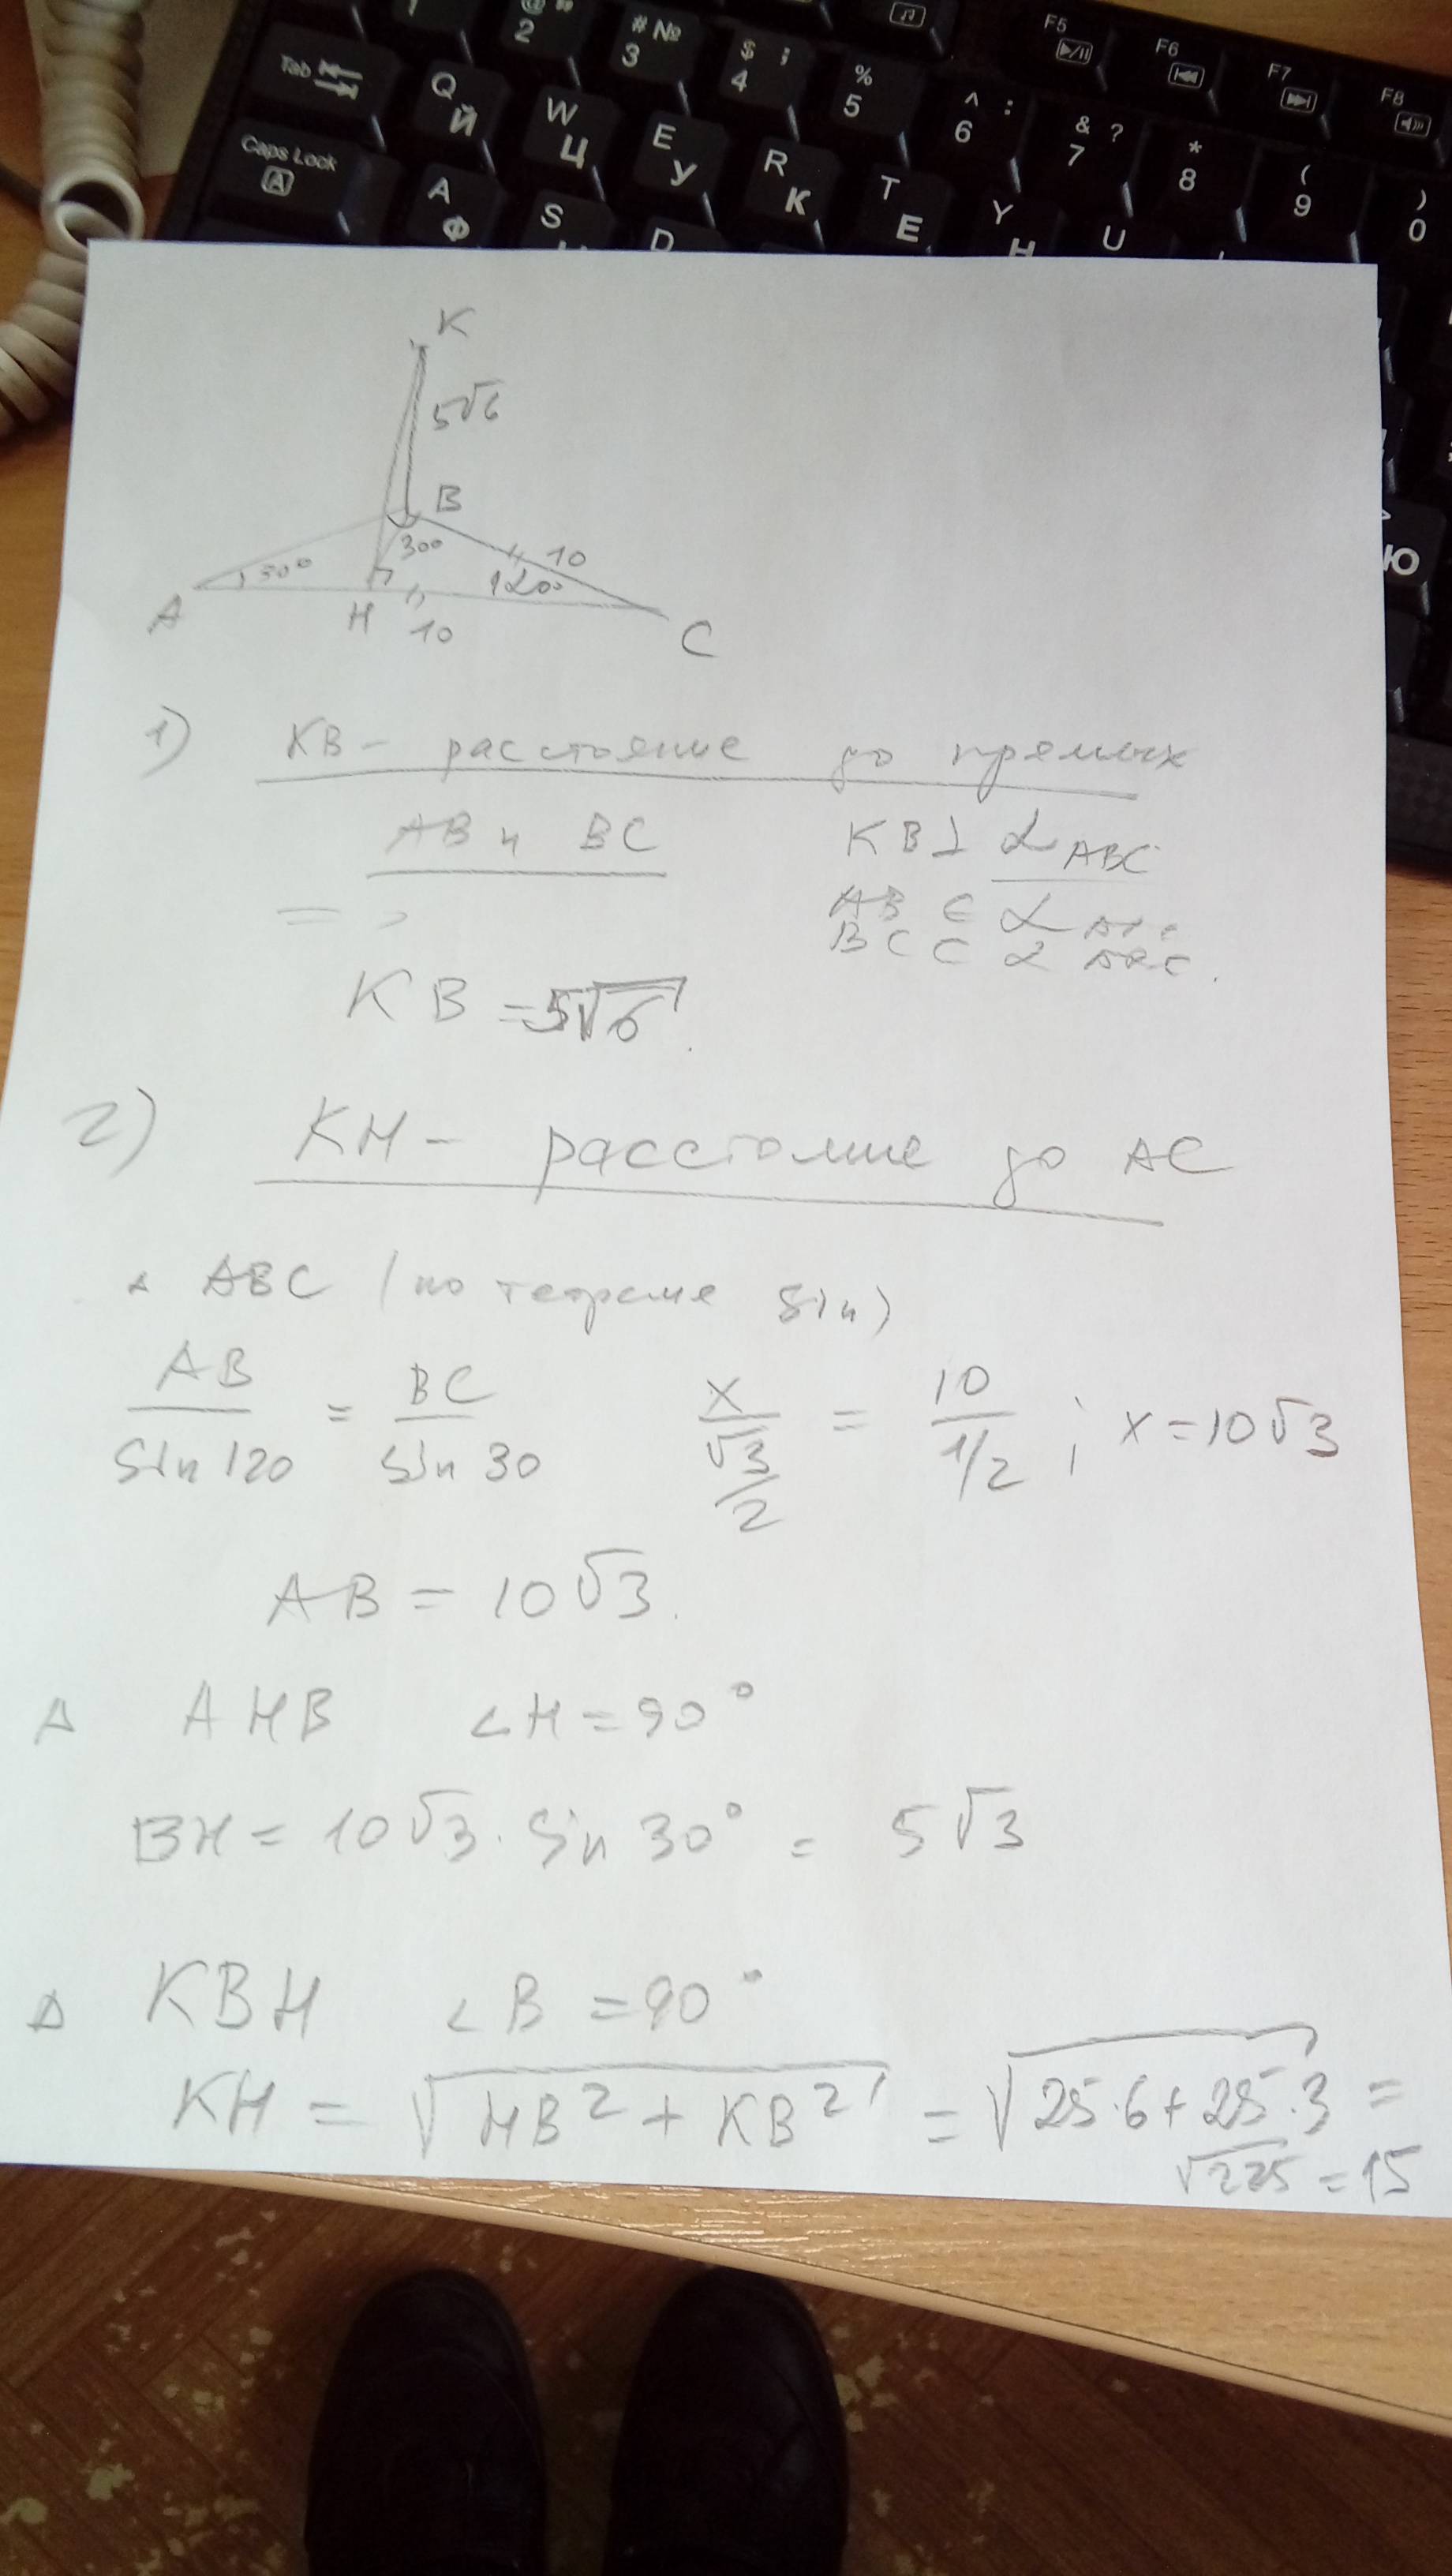 1
@ "
2
# №
3
$ ;
4
%
5
^ :
6
& ?
7
*
8
(
9
)
0
F5
F6
F7
F8
Tab
Q Й
W Ц
E У
R К
T Е
Y Н
U
Caps Lock
A
A Ф
S
D
Ю
K
5√6
B
30°
30°
10
120°
A
H
10
C
1) KB - расстояние до прямых
AB и BC
KB ⊥ α ABC
AB ⊂ α
BC ⊂ α ABC.
=>
KB = 5√6.
2) KH - расстояние до AC
△ ABC (по теореме sin)
AB / Sin 120 = BC / Sin 30
x / (√3/2) = 10 / (1/2) ; x = 10√3
AB = 10√3.
△ AHB ∠H = 90°
BH = 10√3 · Sin 30° = 5√3
△ KBH ∠B = 90°
KH = √(HB² + KB²) = √(25·6 + 25·3) =
√225 = 15